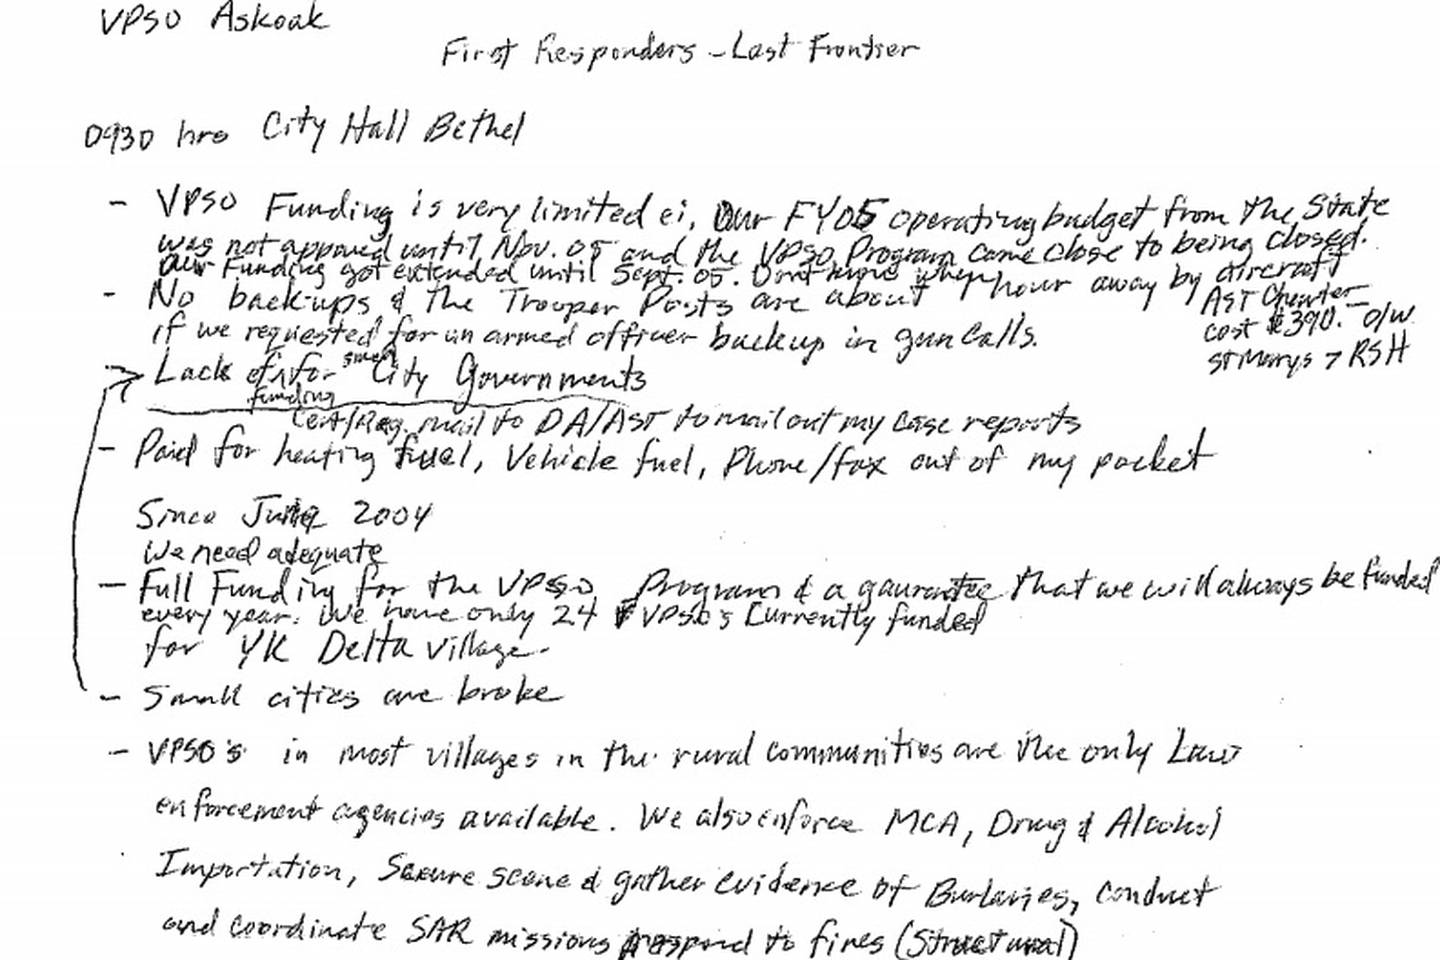 VPSO Askoak
First Responders - Last Frontier
0930 hrs City Hall Bethel
- VPSO Funding is very limited ei, Our FY05 operating budget from the State
was not approved until Nov. 05 and the VPSO Program came close to being closed.
Our Funding got extended until Sept. 05. Dont know when
- No back-ups & the Trooper Posts are about hour away by aircraft
if we requested for an armed officer backup in gun calls.
AST Charter
cost $390. - o/w
St Marys > RSH
-> Lack of funding for small City Governments
Cert/Reg. mail to DA/AST to mail out my case reports
- Paid for heating fuel, Vehicle fuel, Phone/fax out of my pocket
Since June 2004
We need adequate
- Full Funding for the VPSO Program & a gaurantee that we will always be funded
every year. We have only 24 VPSO's Currently funded
for YK Delta Village.
- Small cities are broke
- VPSO's in most villages in the rural communities are the only Law
enforcement agencies available. We also enforce MCA, Drug & Alcohol
Importation, Secure scene & gather evidence of Burlaries, conduct
and coordinate SAR missions respond to fires (Structural)